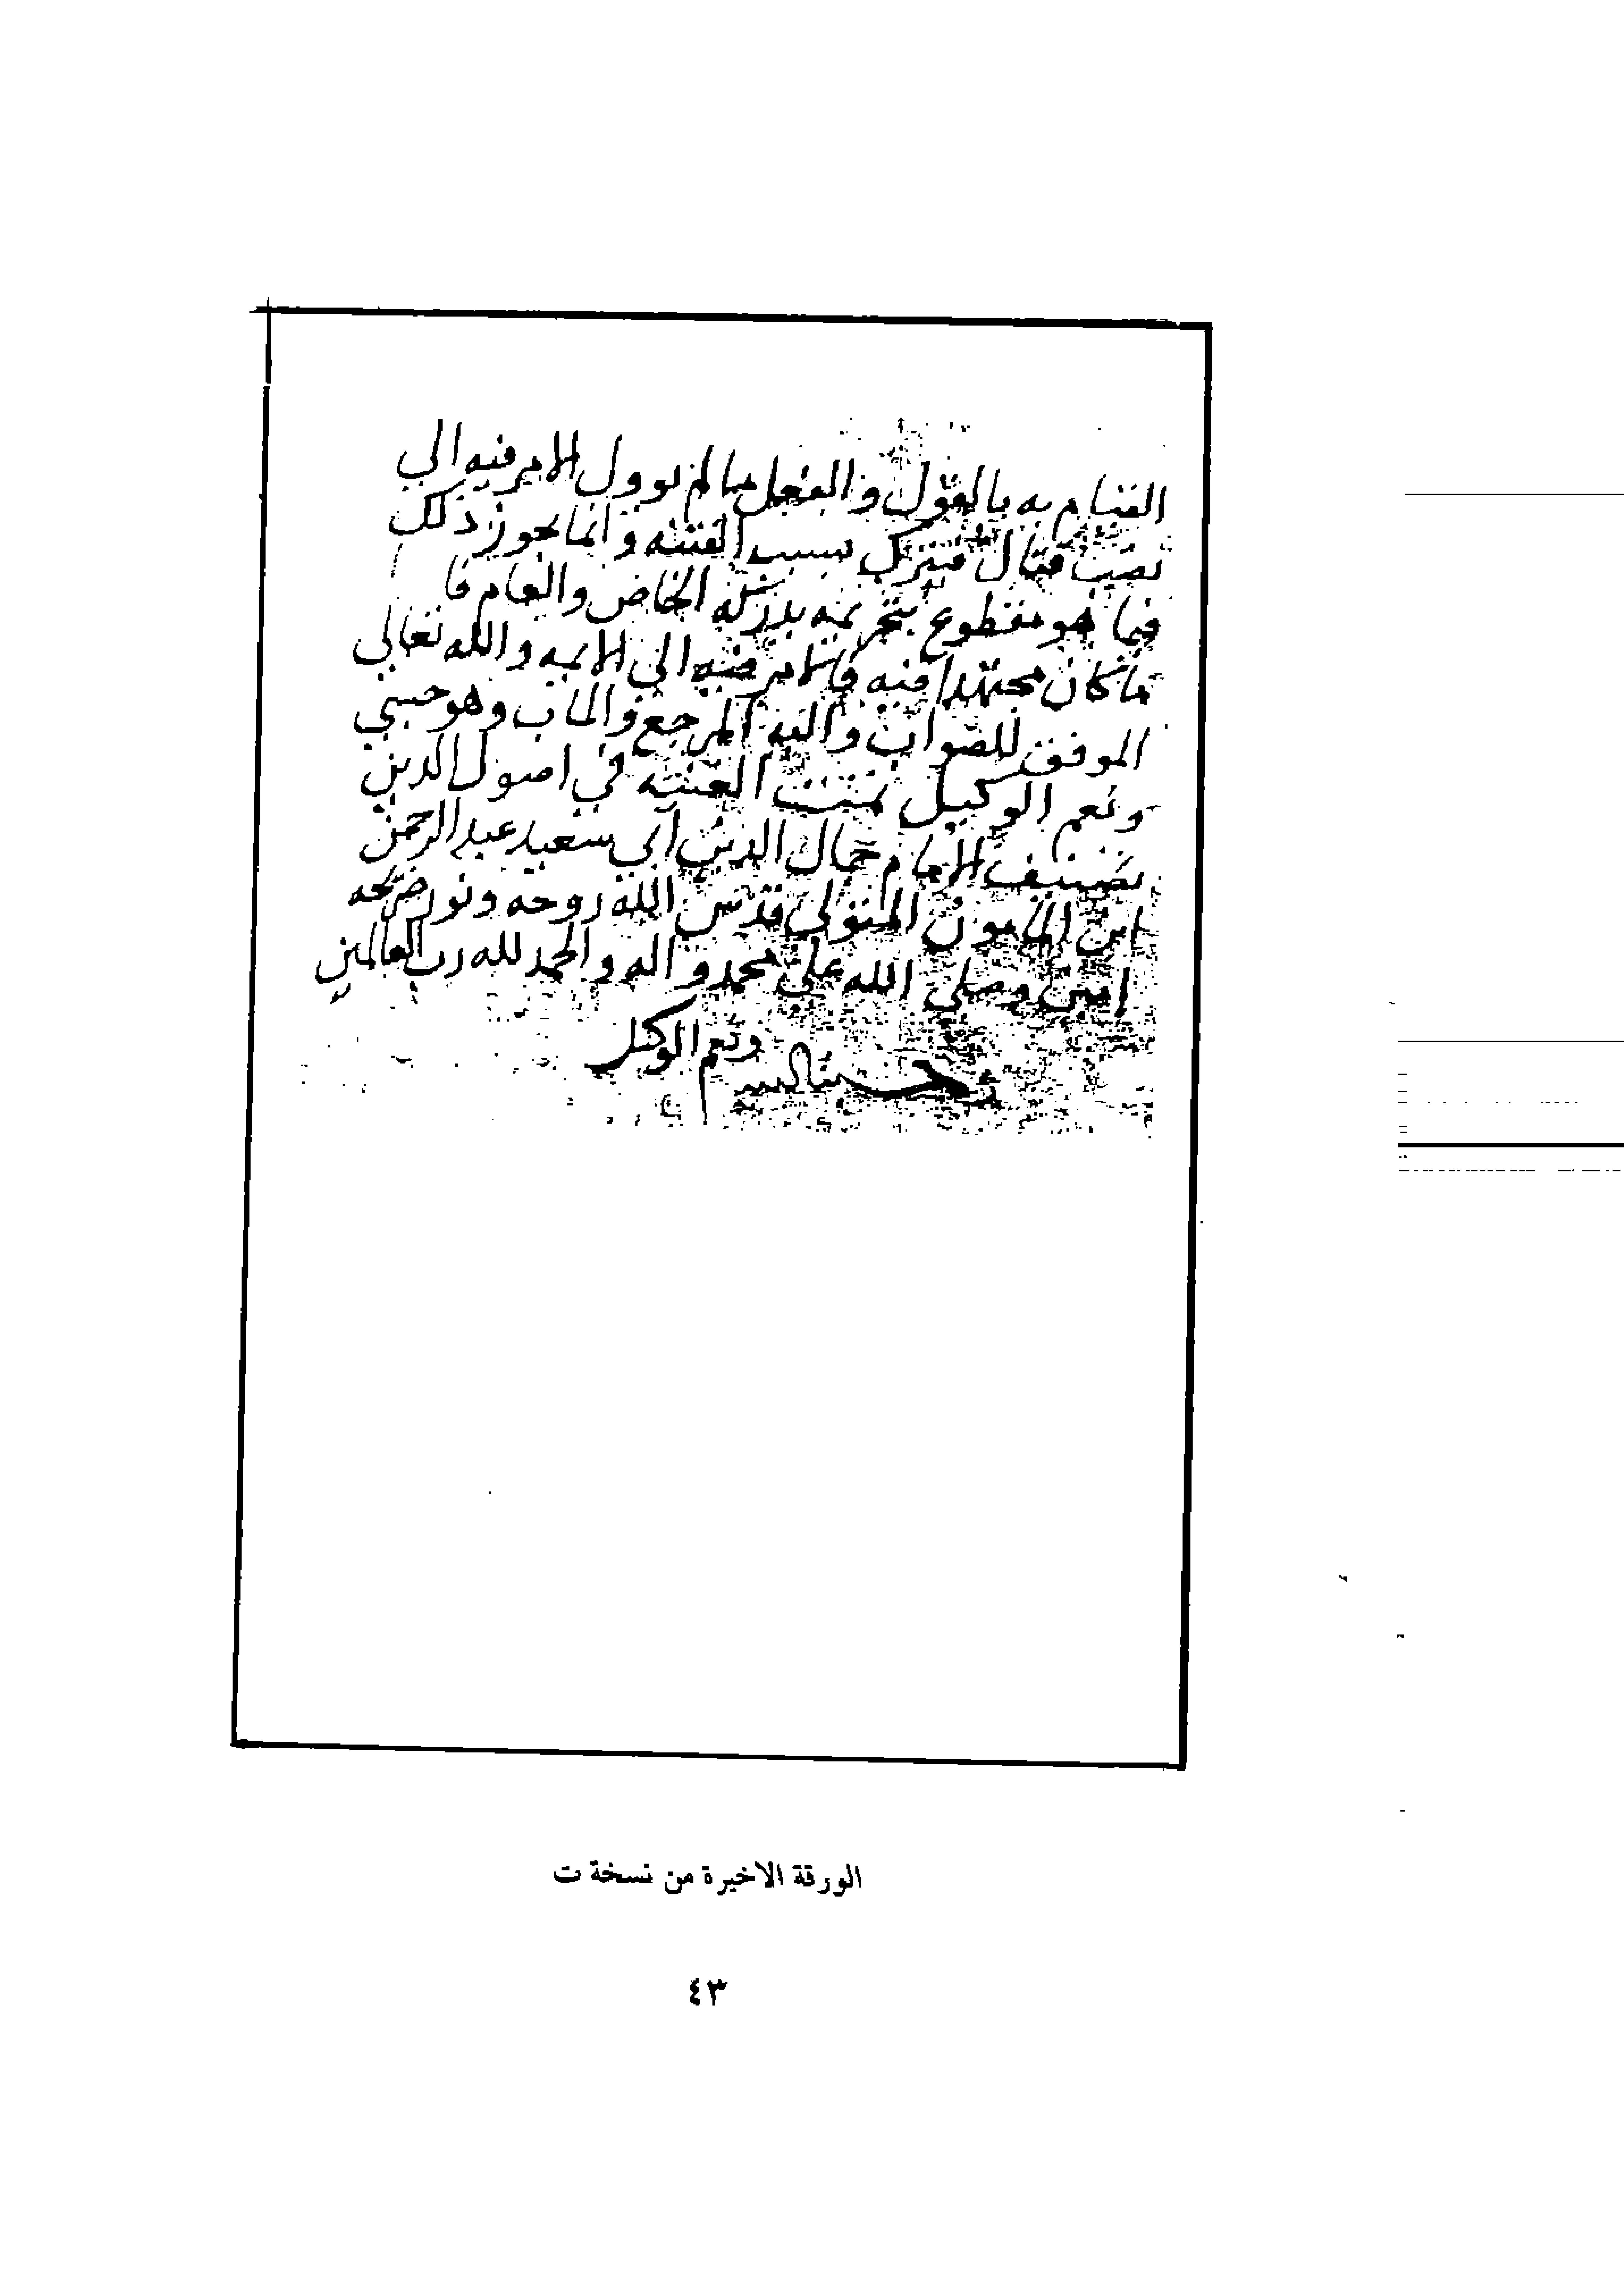 القيام به بالقول والفعل ما لم يوول الامر فيه الي
نصب قتال فيترك بسبب الفتنه وانما يجوز ذلك
فيما هو مقطوع بتحريمه يدركه الخاص والعام فا
ما كان مجتهدا فيه فالامر فيه الي الايمه والله تعالي
الموفق للصواب واليه المرجع والماب وهو حسبي
ونعم الوكيل تمت الغنيه في اصول الدين
تصنيف الامام جمال الدين ابي سعيد عبد الرحمن
ابن المامون المتولي قدس الله روحه ونور ضريحه
امين وصلي الله علي محمد واله والحمد لله رب العالمين
حسبنا الله ونعم الوكيل
الورقة الاخيرة من نسخة ت
٤٣